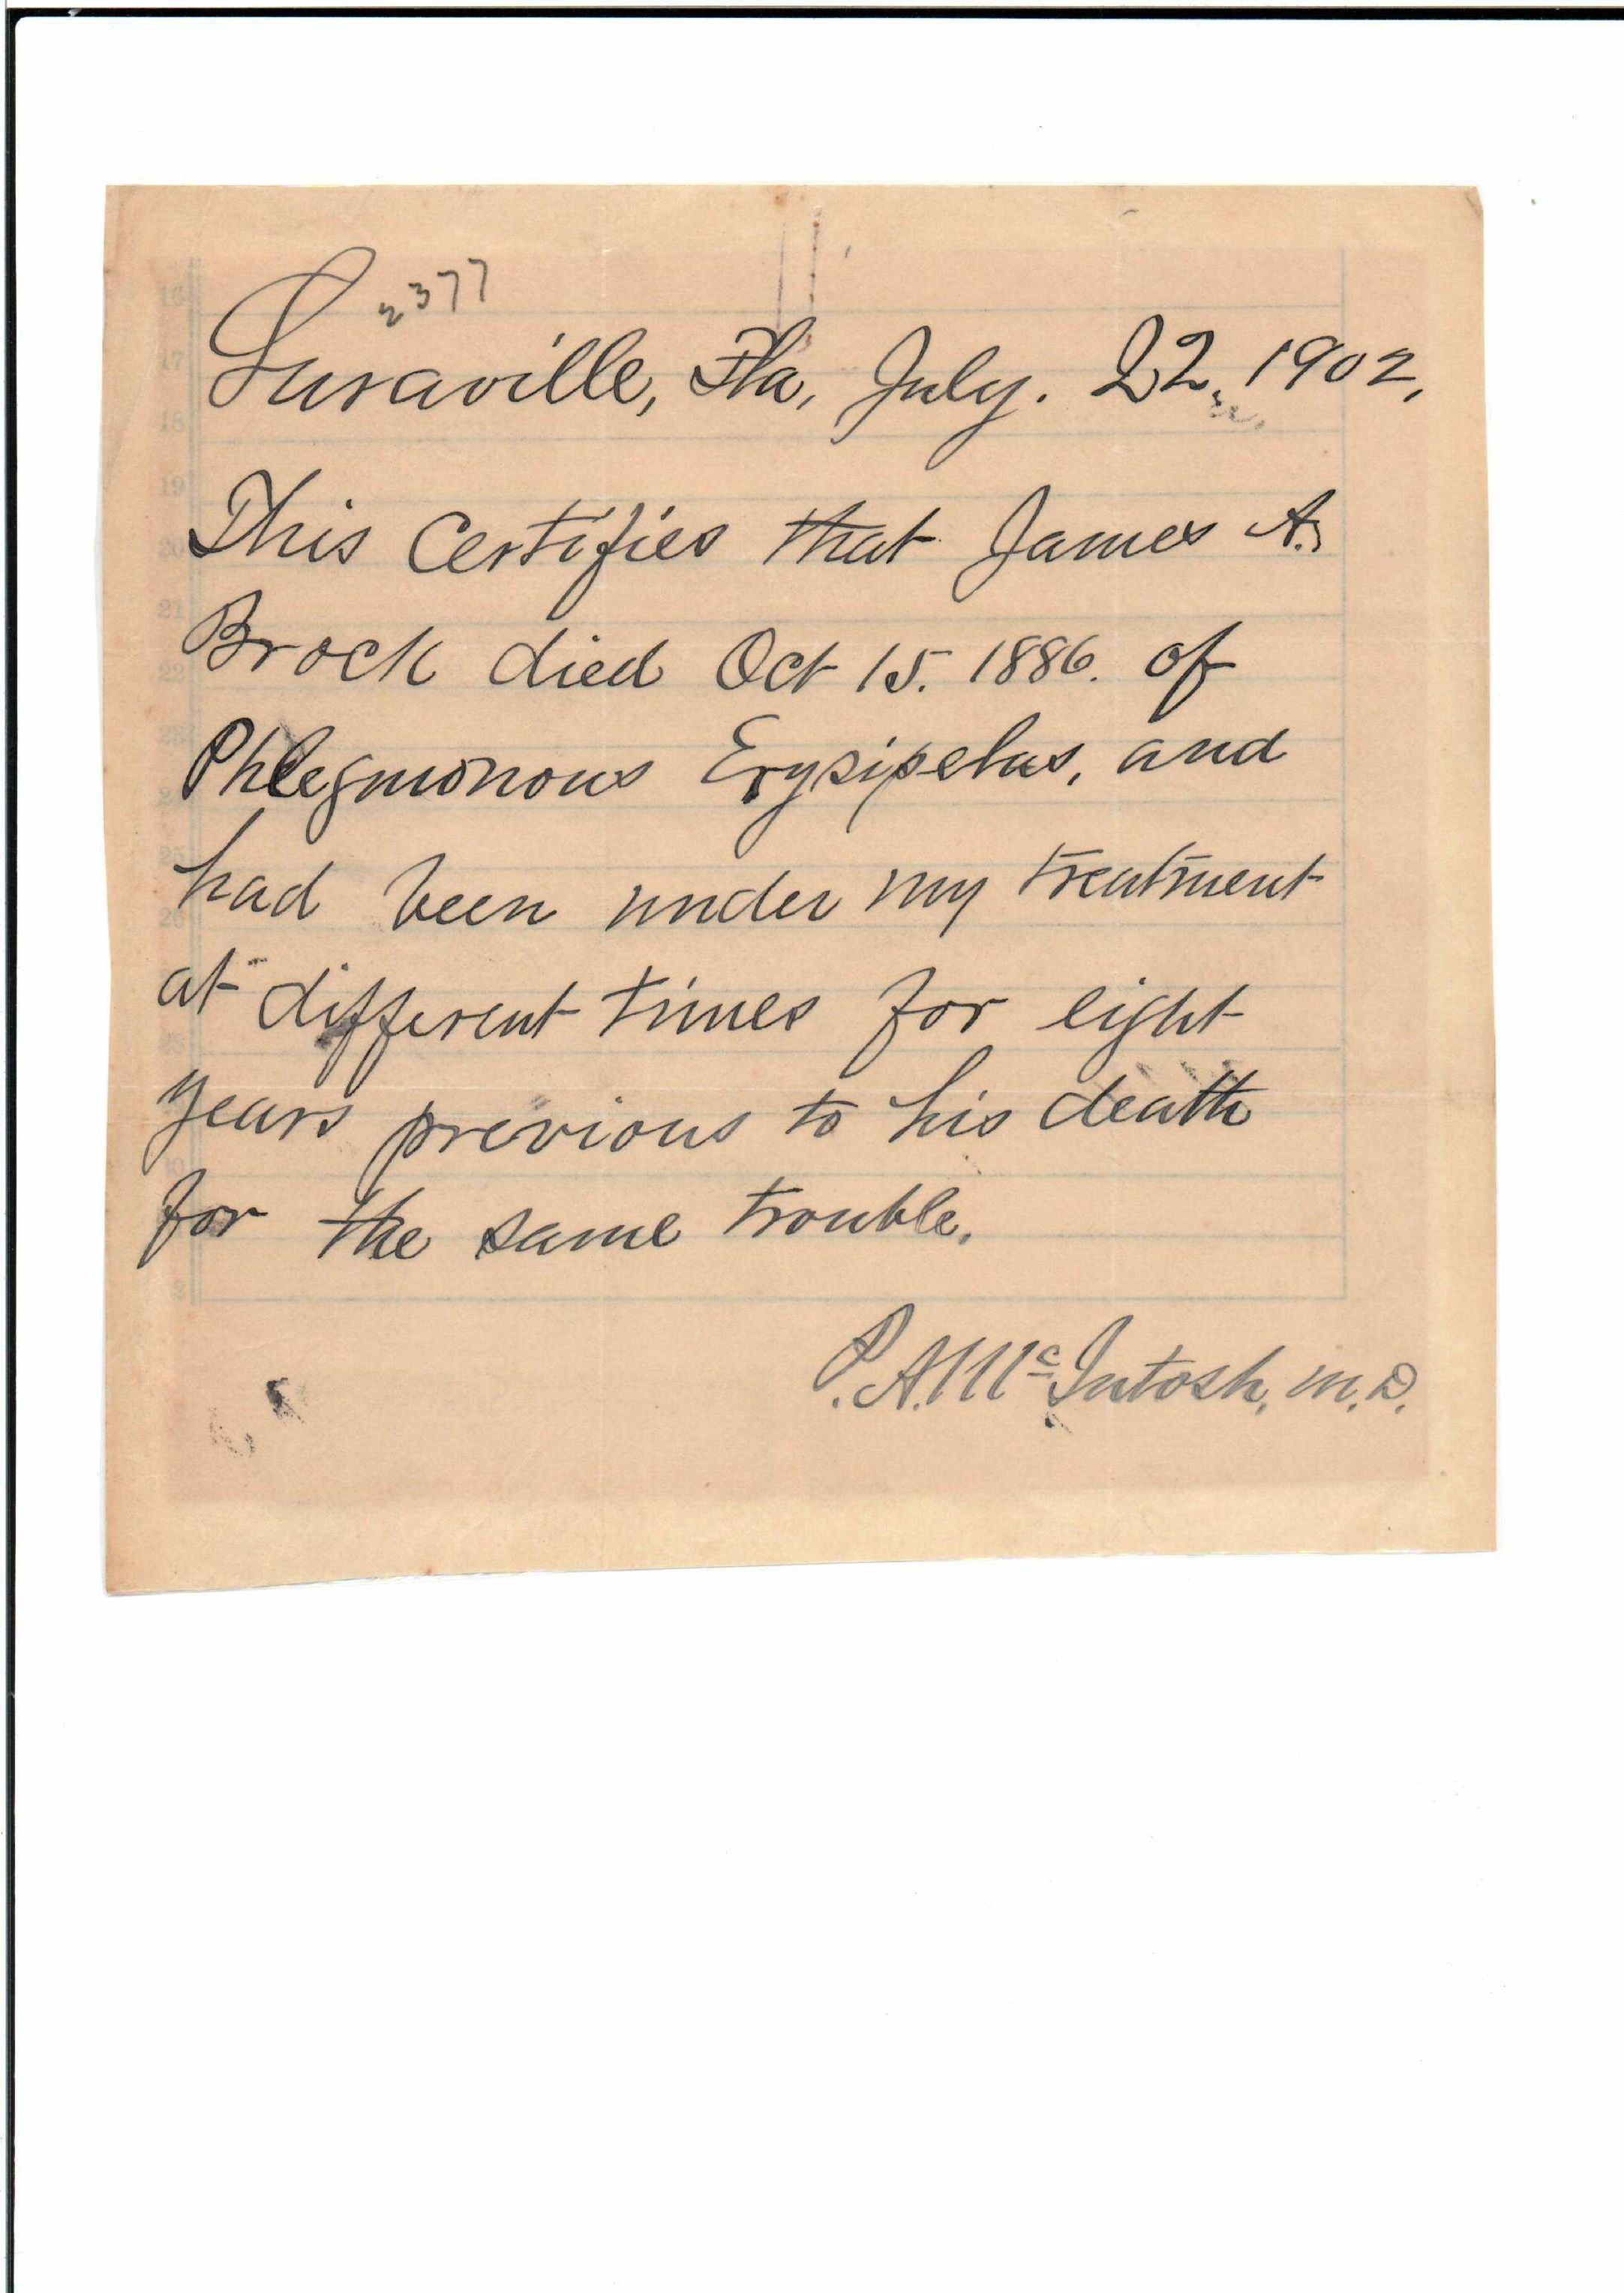 2377
Luraville, Fla, July. 22, 1902,
This Certifies that James A.
Brock died Oct 15. 1886. of
Phlegmonous Erysipelas, and
had been under my treatment
at different times for eight
years previous to his death
for the same trouble.
P. A. McIntosh, M.D.